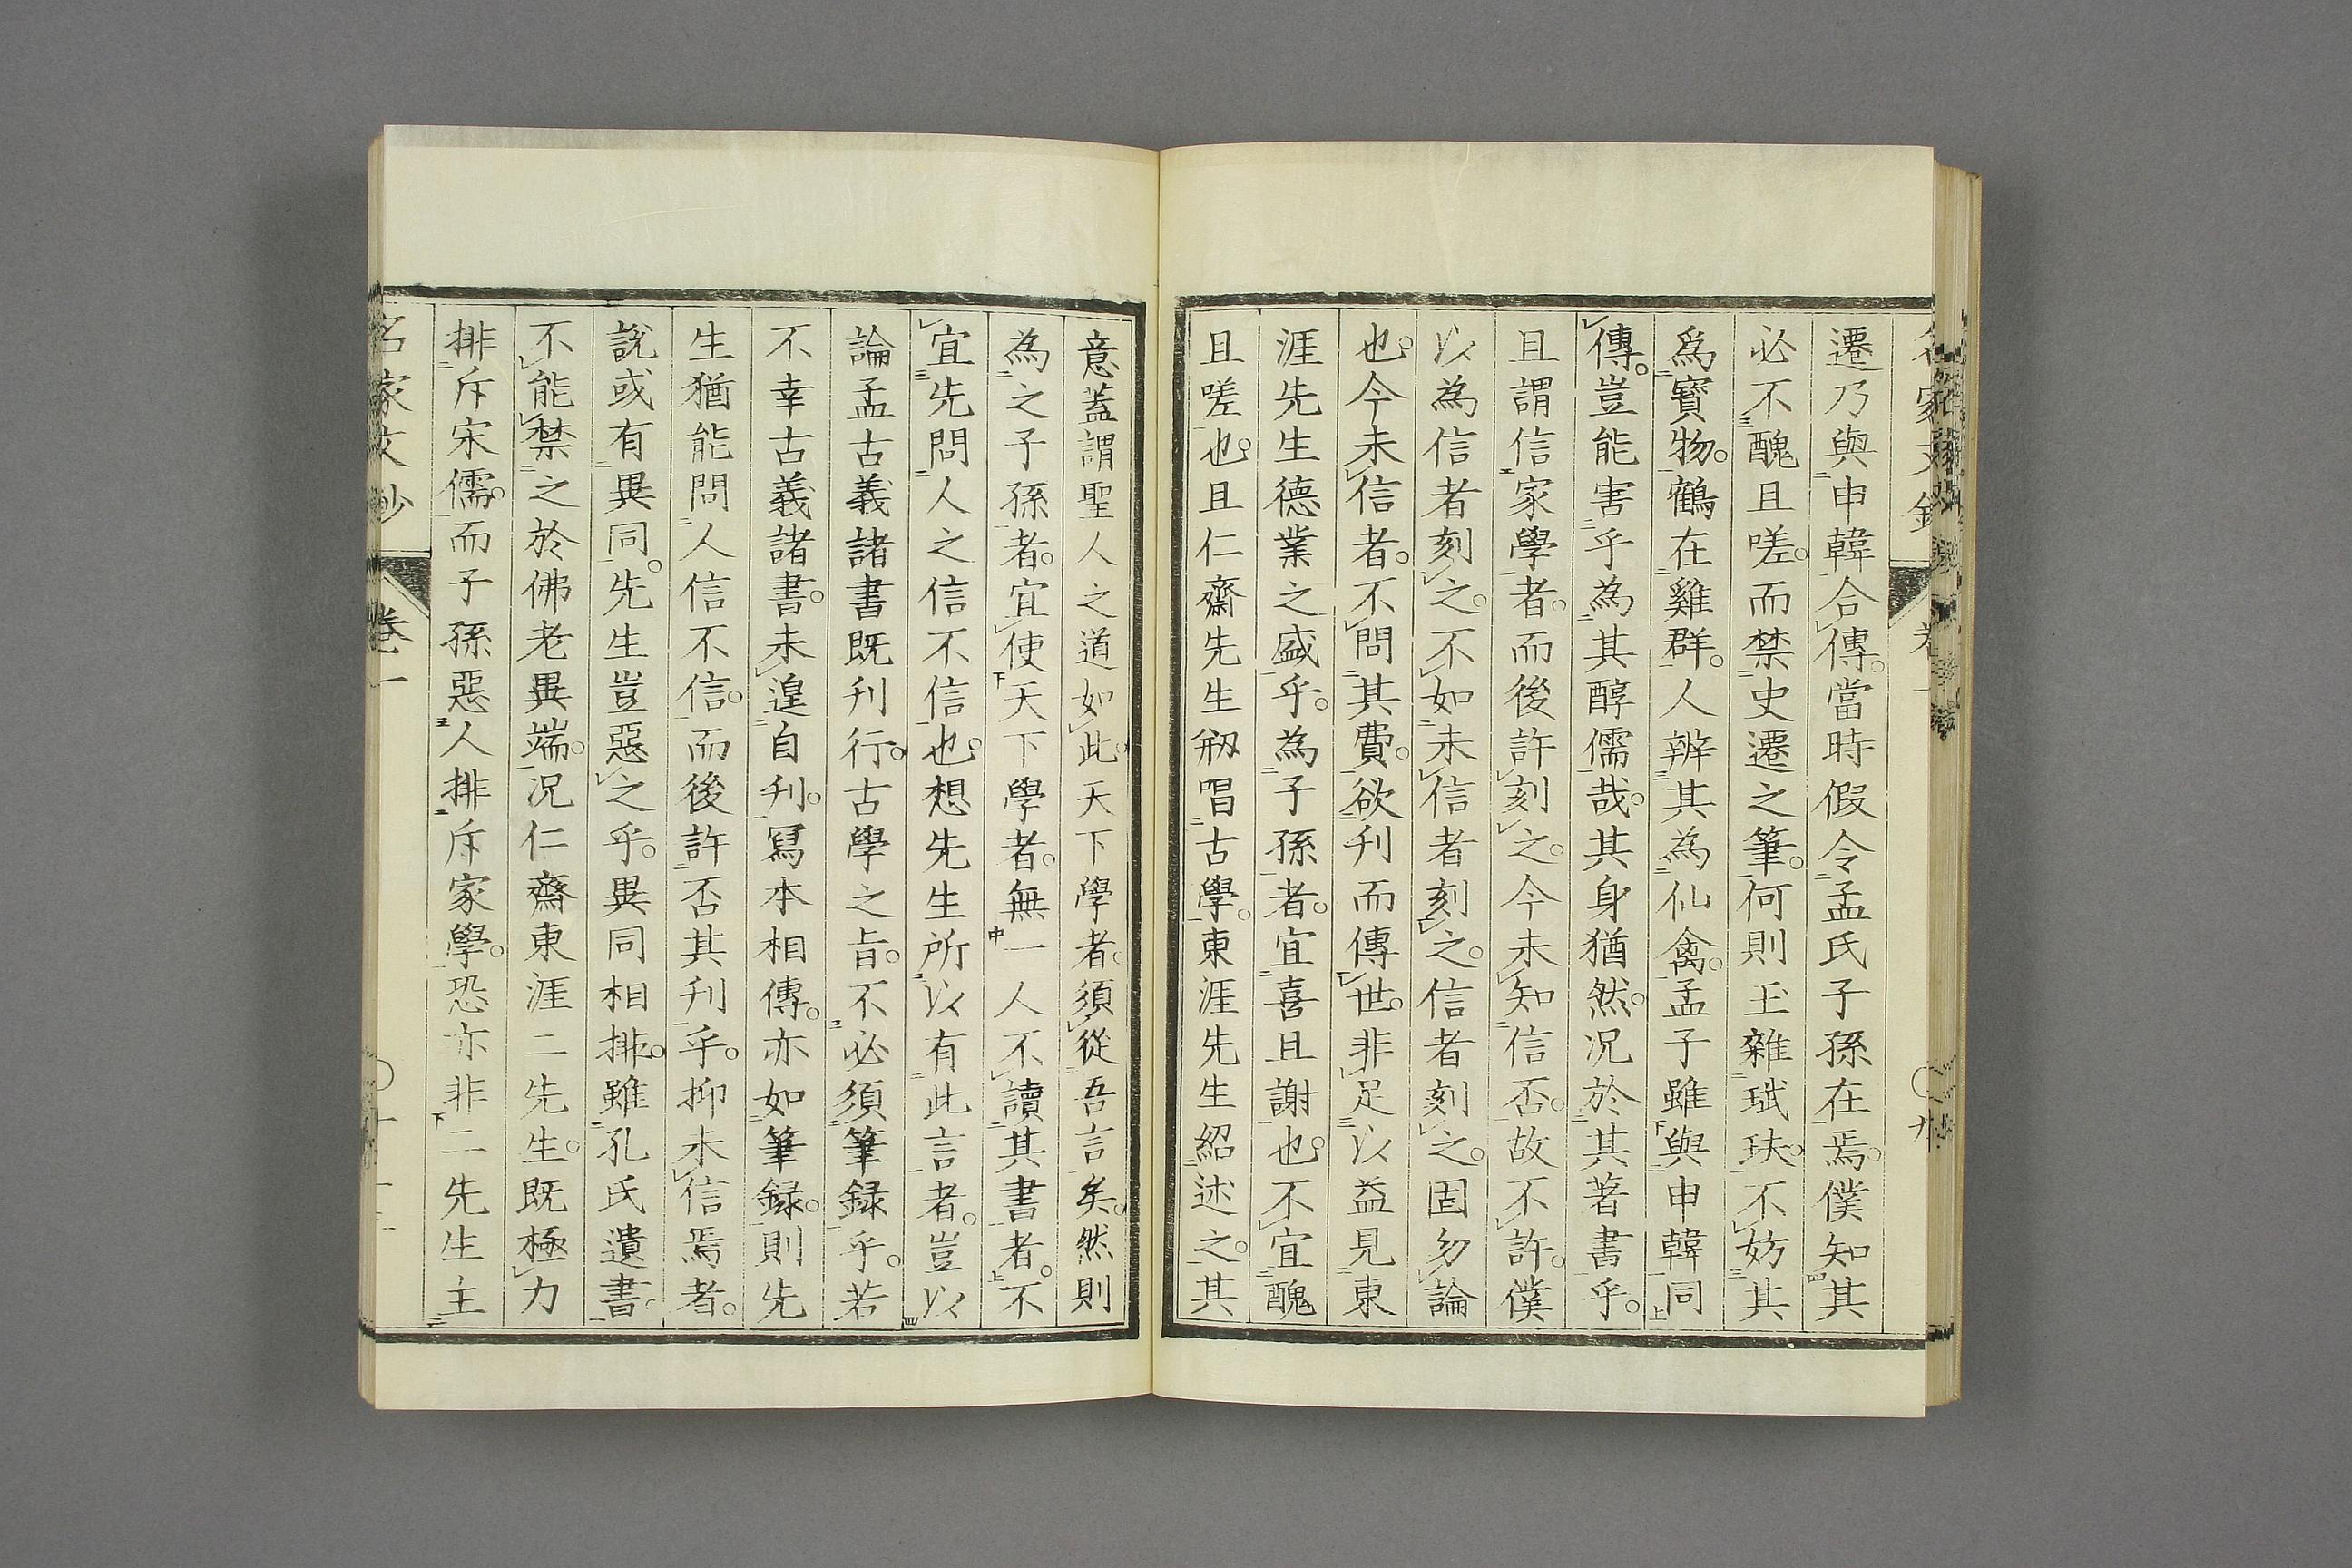 遷乃與申韓合傳。當時假令孟氏子孫在焉。僕知其
必不醜且嗟。而禁史遷之筆。何則玉雜珷玞。不妨其
爲寶物。鶴在雞群。人辨其為仙禽。孟子雖與申韓同
傳。豈能害乎為其醇儒哉。其身猶然。況於其著書乎。
且謂信家學者。而後許刻之。今未知信否。故不許。僕
以為信者刻之。不如未信者刻之。信者刻之。固勿論
也。今未信者。不問其費。欲刊而傳世。非足以益見東
涯先生德業之盛乎。為子孫者。宜喜且謝也。不宜醜
且嗟也。且仁齋先生剏唱古學。東涯先生紹述之。其
意蓋謂聖人之道如此。天下學者。須從吾言矣。然則
為之子孫者。宜使天下學者。無一人不讀其書者。不
宜先問人之信不信也。想先生所以有此言者。豈以
論孟古義諸書既刊行。古學之旨。不必須筆録乎。若
不幸古義諸書。未遑自刋。冩本相傳。亦如筆録。則先
生猶能問人信不信。而後許否其刋乎。抑未信焉者。
說或有異同。先生豈惡之乎。異同相排。雖孔氏遺書。
不能禁之於佛老異端。況仁齋東涯二先生。既極力
排斥宋儒。而子孫惡人排斥家學。恐亦非二先生主
名家文鈔
卷一